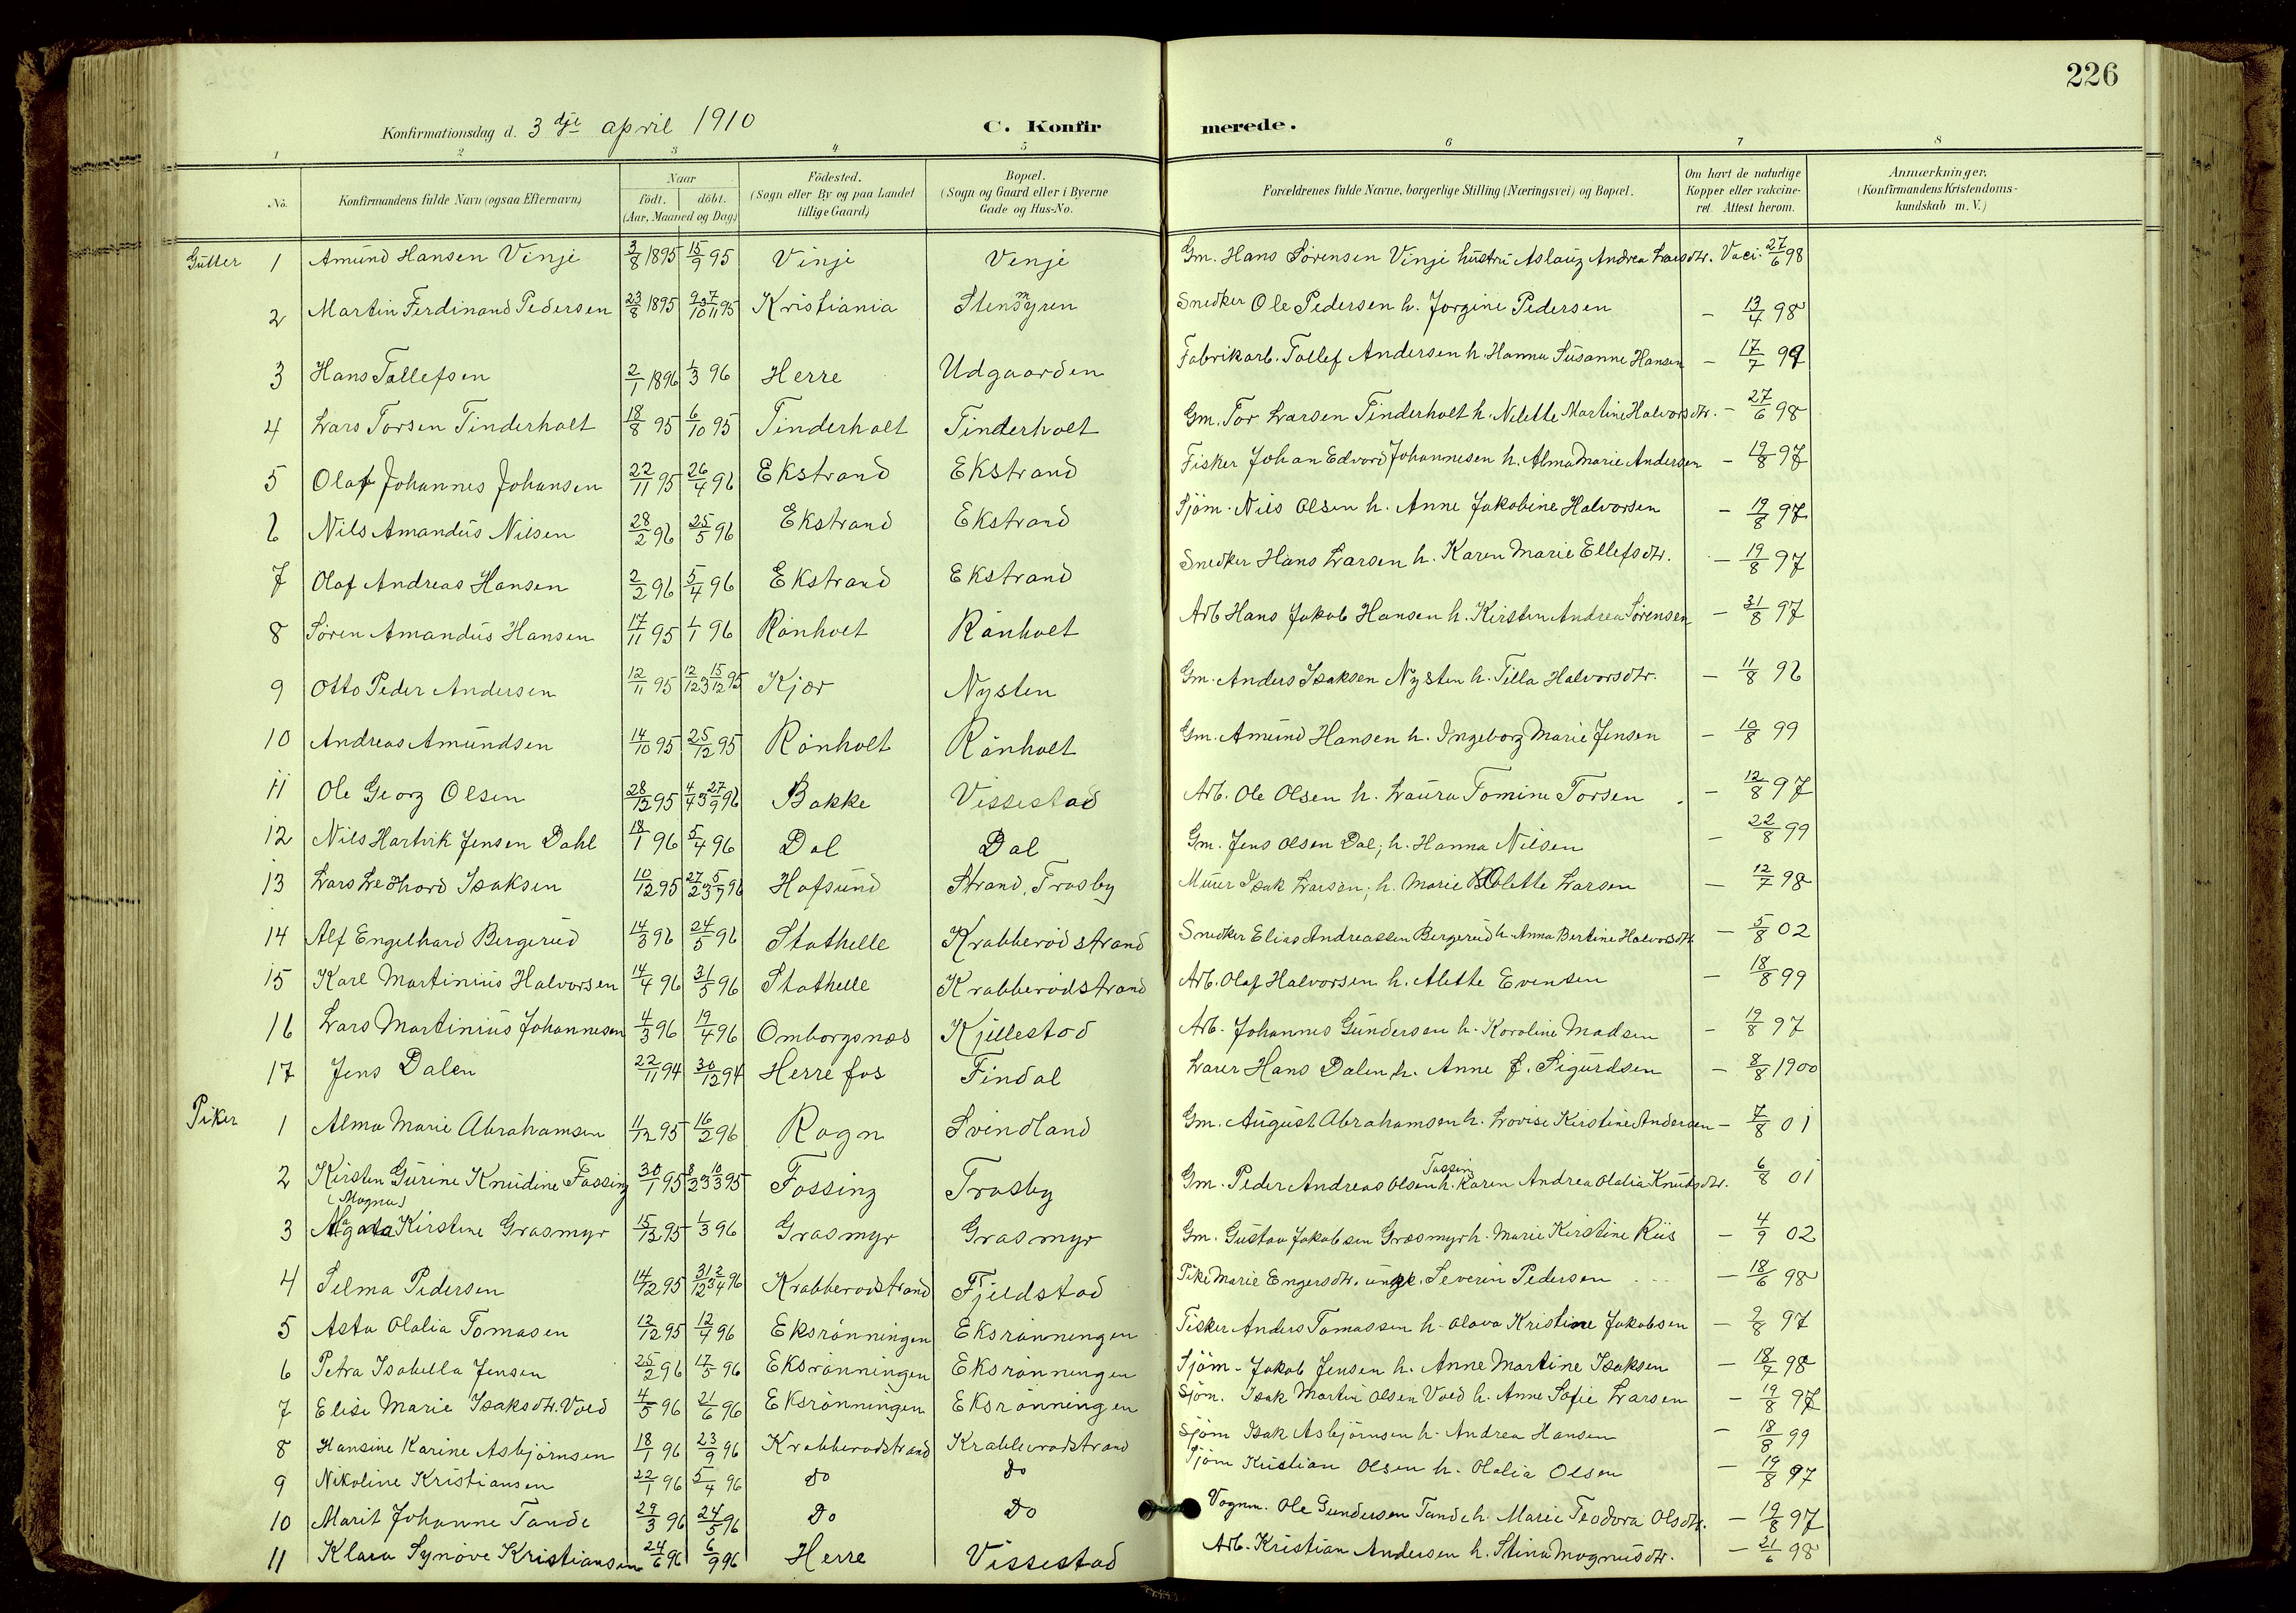 226
Konfirmationsdag d. 3 dje april 1910 C. Konfirmerede.
1 2 3 4 5 6 7 8
No. Konfirmandens fulde Navn (ogsaa Efternavn) Naar født. døbt. (Aar, Maaned og Dag) Fødested. (Sogn eller By og paa Landet tillige Gaard) Bopæl. (Sogn og Gaard eller i Byerne Gade og Hus-No. Forældrenes fulde Navne, borgerlige Stilling (Næringsvei) og Bopæl. Om havt de naturlige Kopper eller vaccineret. Attest herom. Anmærkninger. (Konfirmandens Kristendomskundskab m. V.)
Gutter 1 Amund Hansen Vinje 3/8 1895 15/9 95 Vinje Vinje Gm. Hans Sørensen Vinje hustru Aslaug Andrea Larsdtr. Vaci. 27/6 98
2 Martin Ferdinand Pedersen 23/8 1895 Kristiania Stensyren Snedker Ole Pedersen h. Jorgine Pedersen - 13/4 98
3 Hans Tallefsen 2/1 1896 1/3 96 Herre Udgaarden Fabrikarb. Tallef Andersen h. Hanna Susanne Hansen - 17/7 99
4 Lars Torsen Tinderholt 18/8 95 6/10 95 Tinderholt Tinderholt Gm. Tor Larsen Tinderholt h. Nelette Martine Halvorsdtr. - 27/6 98
5 Olaf Johannes Johansen 22/11 95 26/4 96 Ekstrand Ekstrand Fisker Johan Edvard Johannesen h. Alma Marie Andersen - 19/8 97
6 Nils Amandus Nilsen 28/2 96 25/5 96 Ekstrand Ekstrand Sjøm. Nils Olsen h. Anne Jakobine Halvorsen - 19/8 97
7 Olaf Andreas Hansen 2/2 96 5/4 96 Ekstrand Ekstrand Snedker Hans Larsen h. Karen Marie Ellefsdtr. - 19/8 97
8 Søren Amandus Hansen 17/11 95 1/1 96 Rønholt Rønholt Arb Hans Jakob Hansen h. Kirsten Andrea Sørensen - 31/8 97
9 Otto Peder Andersen 12/11 95 12/12 15/12 95 Kjær Nysten Gm. Anders Isaksen Nysten h. Tilla Halvorsdtr. - 11/8 96
10 Andreas Amundsen 14/10 95 25/12 95 Rønholt Rønholt Gm. Amund Hansen h. Ingeborg Marie Jensen - 10/8 99
11 Ole Georg Olsen 28/12 95 4/4 27/9 96 Bakke Vissestad Arb. Ole Olsen h. Laura Tomine Torsen - 12/8 97
12 Nils Hartvik Jensen Dahl 18/1 96 5/4 96 Dal Dal Gm. Jens Olsen Dal; h. Hanna Nilsen - 22/8 99
13 Lars Isaksen 10/12 95 27/2 5/7 96 Hafsund Strand, Trosby Murer Isak Larsen; h. Marie Olette Larsen - 12/7 98
14 Alf Engelhard Bergerud 14/3 96 24/5 96 Stathelle Krabberødstrand Snedker Elias Andreassen Bergerud h. Anna Bertine Halvorsdtr - 5/8 02
15 Karl Martinius Halvorsen 14/4 96 31/5 96 Stathelle Krabberødstrand Arb. Olaf Halvorsen h. Alette Evensen - 18/8 99
16 Lars Martinius Johannesen 4/3 96 19/4 96 Omborgsnæs Kjellestad Arb. Johannes Gundersen h. Karoline Madsen - 19/8 97
17 Jens Dalen 22/11 94 30/12 94 Herre fos Findal Lærer Hans Dalen h. Anne J. Sigurdsen - 8/8 1900
Piker 1 Alma Marie Abrahamsen 11/12 95 16/2 96 Rogn Svindland Gm. August Abrahamsen h. Lovise Kirstine Andersen - 7/8 01
2 Kirsten Gurine Knudine Fossing 30/1 95 8/2 10/3 95 Fossing Trosby Gm. Peder Andreas Olsen Fossing h. Karen Andrea Olalia Knudsdtr. 6/8 01
3 (Magna) Kirstine Grasmyr 15/12 95 1/3 96 Grasmyr Grasmyr Gm. Gustav Jakobsen Grasmyr h. Marie Kirstine Riis - 4/9 02
4 Selma Pedersen 14/12 95 31/12 2/4 96 Krabberødstrand Fjeldstad Pike Marie Engersdtr. ungk. Severin Pedersen - 18/6 98
5 Asta Olalia Tomasen 12/12 95 12/4 96 Eksrønningen Eksrønningen Fisker Anders Tomassen h. Olava Kristine Jakobsen - 2/8 97
6 Petra Isabella Jensen 25/2 96 17/5 96 Eksrønningen Eksrønningen Sjøm. Jakob Jensen h. Anne Martine Isaksen - 18/7 98
7 Elise Marie Isaksdtr. Vold 4/5 96 21/6 96 Eksrønningen Eksrønningen Sjøm. Isak Martin Olsen Vold h. Anne Sofie Larsen - 19/8 97
8 Hansine Karine Asbjørnsen 18/1 96 23/9 96 Krabberødstrand Krabberødstrand Sjøm Isak Asbjørnsen h. Andrea Hansen - 18/8 99
9 Nikoline Kristiansen 22/1 96 5/4 96 do do Sjøm Kristian Olsen h. Olalia Olsen - 19/8 97
10 Marit Johanne Tande 29/3 96 24/5 96 do do Vognm. Ole Gundersen Tande h. Marie Teodora Olsdtr. - 19/8 97
11 Klara Synøve Kristiansen 24/6 96 6/9 96 Herre Vissestad Arb. Kristian Andersen h. Stina Magnusdtr. - 21/6 98